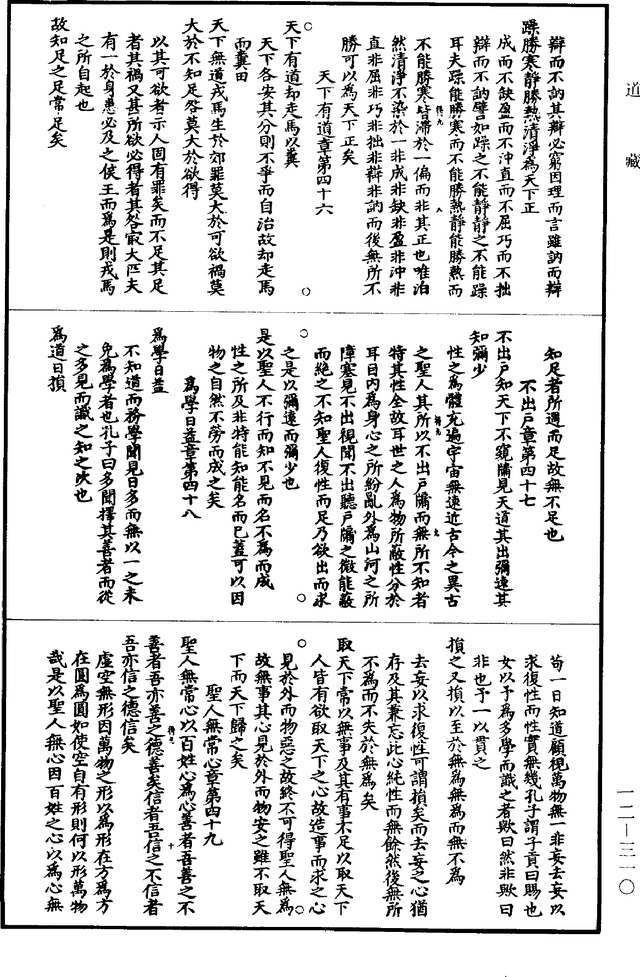 道藏
辯而不訥其辯必窮因理而言雖訥而辯
躁勝寒靜勝熱清淨為天下正
成而不缺盈而不沖直而不屈巧而不拙
辯而不訥譬如躁之不能靜靜之不能躁
耳夫躁能勝寒而不能勝熱靜能勝熱而
不能勝寒皆滯於一偏而非其正也唯泊
然清淨不染於一非成非缺非盈非沖非
直非屈非巧非拙非辯非訥而後無所不
勝可以為天下正矣
天下有道章第四十六
天下有道却走馬以糞
天下各安其分則不爭而自治故却走馬
而糞田
天下無道戎馬生於郊罪莫大於可欲禍莫
大於不知足咎莫大於欲得
以其可欲者示人固有罪矣而不足其足
者其禍又甚所欲必得者其咎㝡大匹夫
有一於身患必及之侯王而為是則戎馬
之所自起也
故知足之足常足矣
知足者所遇而足故無不足也
不出戶章第四十七
不出戶知天下不窺牖見天道其出彌遠其
知彌少
性之為體充遍宇宙無遠近古今之異古
之聖人其所以不出戶牖而無所不知者
特其性全故耳世之人為物所蔽性分於
耳目內為身心之所紛亂外為山河之所
障塞見不出視聞不出聽戶牖之微能蔽
而絕之不知聖人復性而足乃欲出而求
之是以彌遠而彌少也
是以聖人不行而知不見而名不為而成
性之所及非特能知能名而已蓋可以因
物之自然不勞而成之矣
為學日益章第四十八
為學日益
不知道而務學聞見日多而無以一之未
免為學者也孔子曰多聞擇其善者而從
之多見而識之知之次也
為道日損
苟一日知道顧視萬物無一非妄去妄以
求復性而性實無幾孔子謂子貢曰賜也
女以予為多學而識之者歟曰然非歟曰
非也予一以貫之
損之又損以至於無為無為而無不為
去妄以求復性可謂損矣而去妄之心猶
存及其兼忘此心純性而無餘然後無所
不為而不失於無為矣
取天下常以無事及其有事不足以取天下
人皆有欲取天下之心故造事而求之心
見於外而物惡之故終不可得聖人無為
故無事其心見於外而物安之雖不取天
下而天下歸之矣
聖人無常心章第四十九
聖人無常心以百姓心為心善者吾善之不
善者吾亦善之德善矣信者吾信之不信者
吾亦信之德信矣
虛空無形因萬物之形以為形在方為方
在圓為圓如使空自有形則何以形萬物
哉是以聖人無心因百姓之心以為心無
一二—三一〇